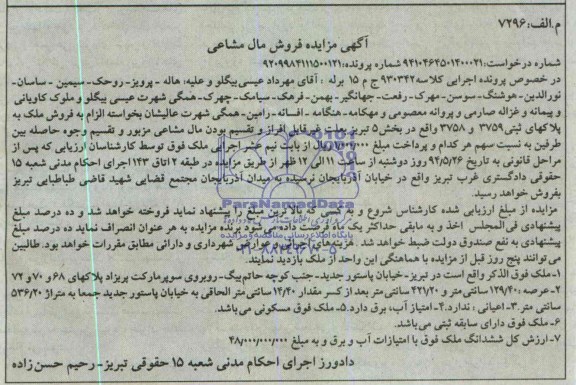 م.الف:۷۲۹۶
آگهی مزایده فروش مال مشاعی
شماره درخواست:۹۴۱۰۴۶۴۵۰۱۴۰۰۰۲۱ شماره پرونده:۹۲۰۹۹۸۴۱۱۱۵۰۰۱۲۱
در خصوص پرونده اجرایی کلاسه ۹۳۰۳۴۲ ج م ۱۵ برله : آقای مهرداد عیسی بیگلو و علیه: هاله - پرویز- روحک- سیمین - ساسان-
نورالدین- هوشنگ- سوسن- مهرک- رفعت- جهانگیر- بهمن- فرهنگ- سیامک- چهرک- همگی شهرت عیسی بیگلو و ملوک کاویانی
و پیمانه و غزاله صارمی و پروانه معصومی و مهکامه- هنگامه - افسانه - رامین- همگی شهرت عالیشان بخواسته الزام به فروش ملک به
پلاکهای ثبتی ۳۷۵۹ و ۳۷۵۸ واقع در بخش۵ تبریز بعلت غیرقابل افراز و تقسیم بودن مال مشاعی مزبور و تقسیم وجوه حاصله بین
طرفین به نسبت سهم هر کدام و پرداخت مبلغ ریال از بابت نیم عشر اجرایی ملک فوق توسط کارشناسان ارزیابی که پس از
مراحل قانونی به تاریخ ۹۴/۵/۲۶ روز دوشنبه از ساعت ۱۱ الی ۱۲ ظهر از طریق مزایده در طبقه ۲ اتاق ۱۴۳ اجرای احکام مدنی شعبه ۱۵
حقوقی دادگستری غرب تبریز واقع در خیابان آذربایجان نرسیده به میدان آذربایجان مجتمع قضایی شهید قاضی طباطبایی تبریز
بفروش خواهد رسید.
مزایده از مبلغ ارزیابی شده کارشناس شروع و به کسی که بالاترین مبلغ را پیشنهاد نماید فروخته خواهد شد و ده درصد مبلغ
پیشنهادی فی‌المجلس اخذ و به مابقی حداکثر یک ماه فرصت داده می‌شود برنده مزایده به هر عنوان انصراف نماید ده درصد مبلغ
پیشنهادی به نفع صندوق دولت ضبط خواهد شد. هزینه‌های اجرایی و عوارض شهرداری و دارائی مطابق مقررات خواهد بود. طالبین
می‌توانند پنج روز قبل از مزایده با هماهنگی این واحد از ملک بازدید نمایند.
۱-ملک فوق الذکر واقع است در تبریز- خیابان پاستور جدید- جنب کوچه حاتم بیگ- روبروی سوپرمارکت پریزاد پلاکهای ۶۸ و ۷۰ و ۷۲
۲-عرصه: ۱۲۹/۴۰ سانتی‌متر و ۴۲۱/۲۰ سانتی‌متر بعد از کسر مقدار ۱۴/۴۰ سانتی‌متر الحاقی به خیابان پاستور جدید جمعا به متراژ ۵۳۶/۲۰
سانتی متر.۳-اعیانی : ندارد.۴-امتیاز: آب، برق دارد.۵-ملک فوق مسکونی می‌باشد.
۶-ملک فوق دارای سابقه ثبتی می‌باشد.
۷-ارزش کل ششدانگ ملک فوق با امتیازات آب و برق و به مبلغ ۴۸/۰۰۰/۰۰۰/۰۰۰
دادورز اجرای احکام مدنی شعبه ۱۵ حقوقی تبریز- رحیم حسن زاده
ParaNamadData